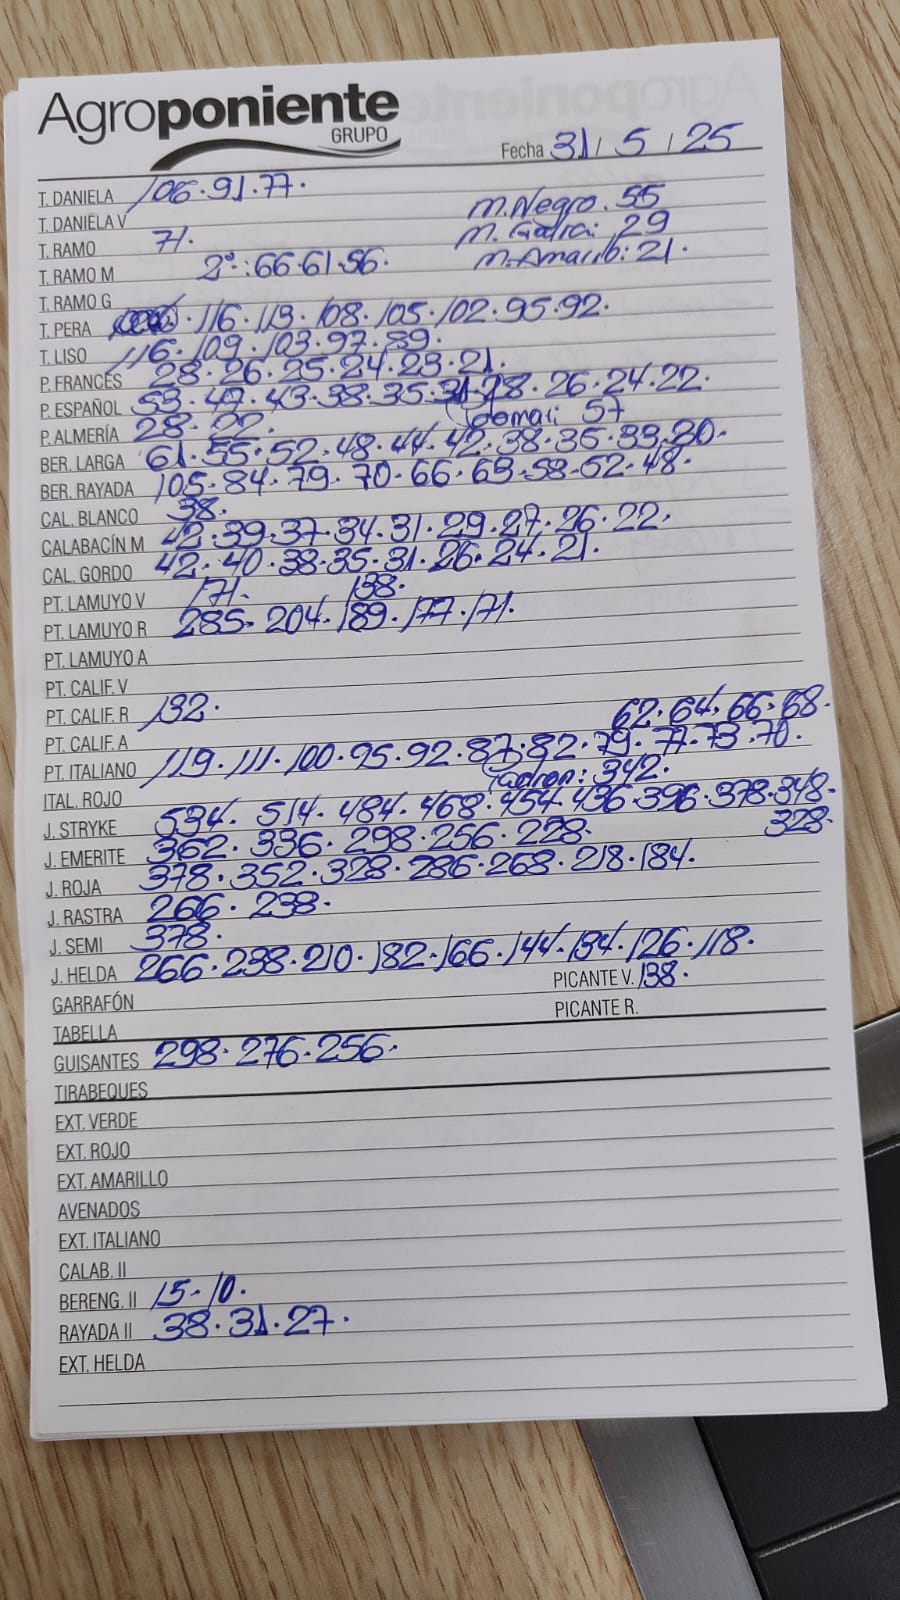 Agroponiente
GRUPO
Fecha 31 / 5 / 25
T. DANIELA 106.91.77.
T. DANIELA V M.Negro. 55
T. RAMO 71. M. Galia: 29
T. RAMO M 2º:66.61.56. M.Amarillo: 21.
T. RAMO G
T. PERA .116.113.108.105.102.95.92.
T. LISO 116.109.103.97.89.
P. FRANCÉS 28.26.25.24.23.21.
P. ESPAÑOL 53.47.43.38.35.31.28.26.24.22.
P. ALMERÍA 28.22. 57
BER. LARGA 61.55.52.48.44.42.38.35.33.30.
BER. RAYADA 105.84.79.70.66.63.58.52.48.
CAL. BLANCO 38.
CALABACÍN M 42.39.37.34.31.29.27.26.22.
CAL. GORDO 42.40.38.35.31.26.24.21.
PT. LAMUYO V 171. 138.
PT. LAMUYO R 285.204.189.177.171.
PT. LAMUYO A
PT. CALIF. V
PT. CALIF. R 132.
PT. CALIF. A 62.64.66.68.
PT. ITALIANO 119.111.100.95.92.87.82.79.77.73.70.
ITAL. ROJO 342.
J. STRYKE 534.514.484.468.454.436.396.378.348.
328.
J. EMERITE 362.336.298.256.228.
J. ROJA 378.352.328.286.268.218.184.
J. RASTRA 266.238.
J. SEMI 378.
J. HELDA 266.238.210.182.166.144.134.126.118.
GARRAFÓN PICANTE V. 138.
TABELLA PICANTE R.
GUISANTES 298.276.256.
TIRABEQUES
EXT. VERDE
EXT. ROJO
EXT. AMARILLO
AVENADOS
EXT. ITALIANO
CALAB. II
BERENG. II 15.10.
RAYADA II 38.31.27.
EXT. HELDA